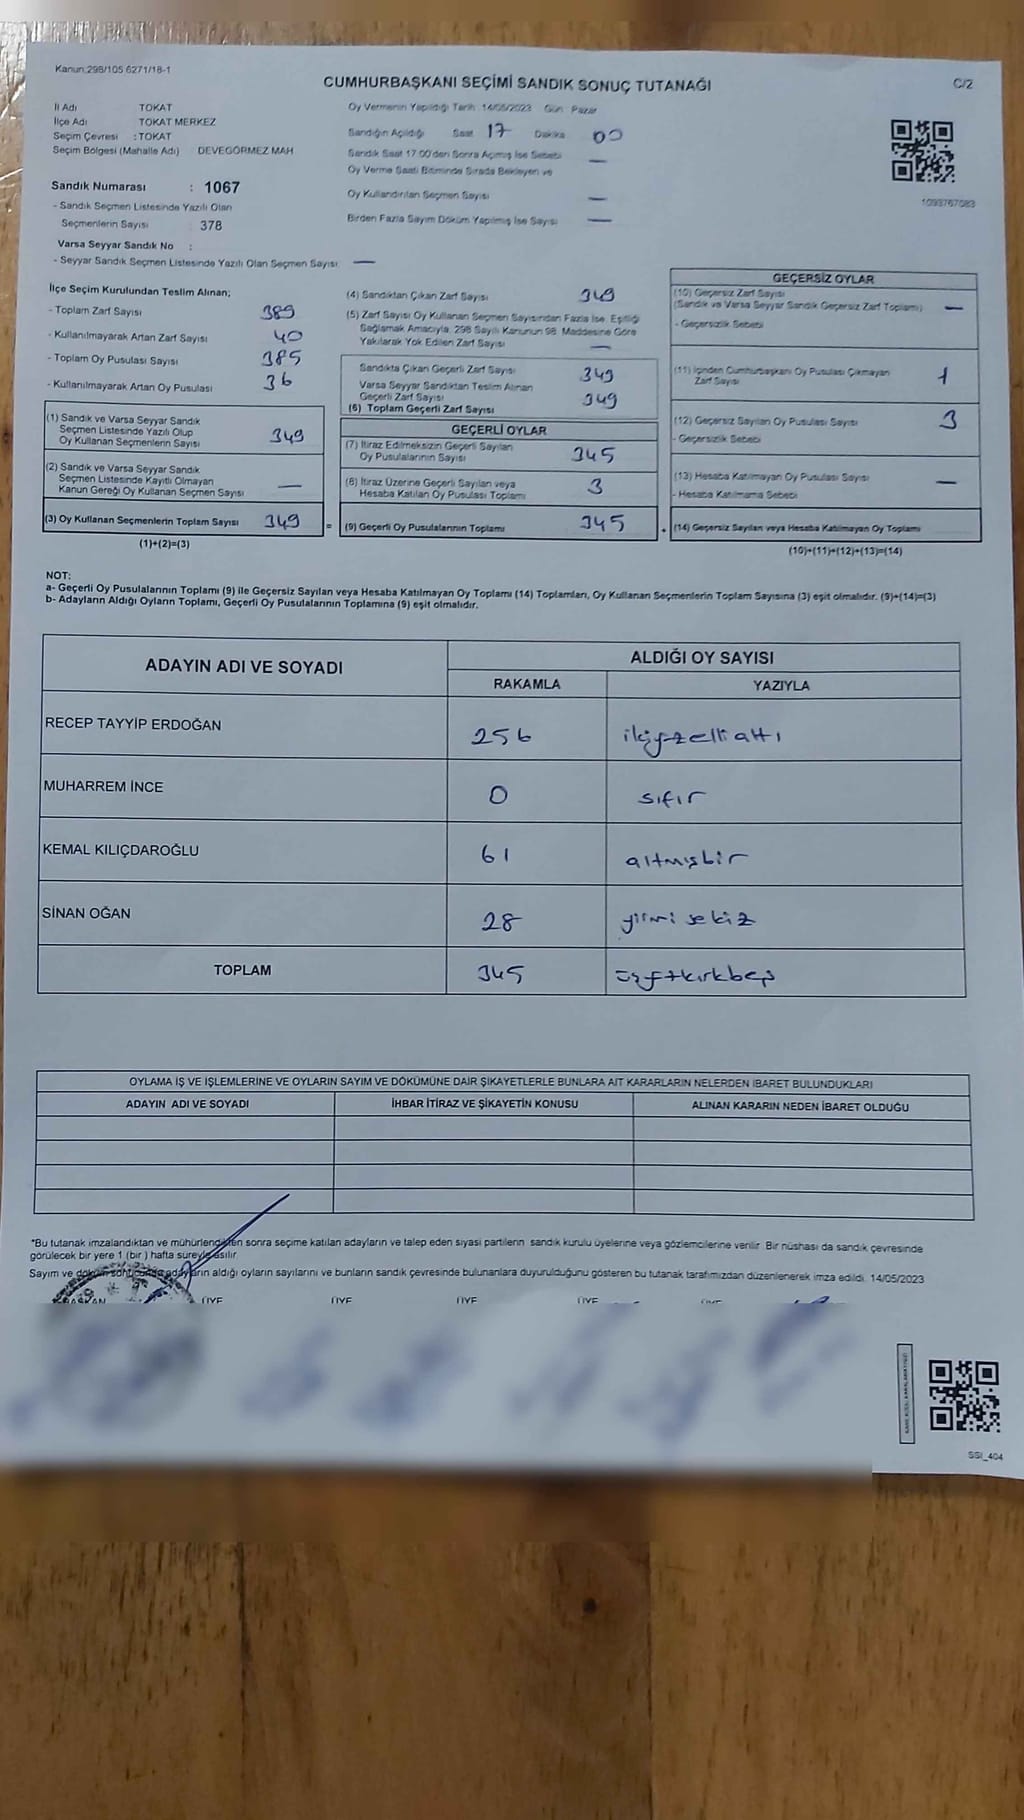 Kanun:298/105 6271/18-1
CUMHURBAŞKANI SEÇİMİ SANDIK SONUÇ TUTANAĞI
C/2
İl Adı TOKAT
İlçe Adı TOKAT MERKEZ
Seçim Çevresi : TOKAT
Seçim Bölgesi (Mahalle Adı) DEVEGÖRMEZ MAH
Oy Vermenin Yapıldığı Tarih : 14/05/2023 Gün : Pazar
Sandığın Açıldığı Saat 17 Dakika 00
Sandık Saat 17:00'den Sonra Açılmış İse Sebebi —
Oy Verme Saati Bitiminde Sırada Bekleyen ve
Oy Kullandırılan Seçmen Sayısı —
Birden Fazla Sayım Döküm Yapılmış İse Sayısı —
1093767083
Sandık Numarası : 1067
- Sandık Seçmen Listesinde Yazılı Olan
Seçmenlerin Sayısı 378
Varsa Seyyar Sandık No :
- Seyyar Sandık Seçmen Listesinde Yazılı Olan Seçmen Sayısı: —
İlçe Seçim Kurulundan Teslim Alınan;
- Toplam Zarf Sayısı 389
- Kullanılmayarak Artan Zarf Sayısı 40
- Toplam Oy Pusulası Sayısı 385
- Kullanılmayarak Artan Oy Pusulası 36
(1) Sandık ve Varsa Seyyar Sandık
Seçmen Listesinde Yazılı Olup
Oy Kullanan Seçmenlerin Sayısı 349
(2) Sandık ve Varsa Seyyar Sandık
Seçmen Listesinde Kayıtlı Olmayan
Kanun Gereği Oy Kullanan Seçmen Sayısı —
(3) Oy Kullanan Seçmenlerin Toplam Sayısı 349
(1)+(2)=(3)
(4) Sandıktan Çıkan Zarf Sayısı 349
(5) Zarf Sayısı Oy Kullanan Seçmen Sayısından Fazla İse, Eşitliği
Sağlamak Amacıyla, 298 Sayılı Kanunun 98. Maddesine Göre
Yakılarak Yok Edilen Zarf Sayısı —
Sandıkta Çıkan Geçerli Zarf Sayısı 349
Varsa Seyyar Sandıktan Teslim Alınan
Geçerli Zarf Sayısı 349
(6) Toplam Geçerli Zarf Sayısı
GEÇERLİ OYLAR
(7) İtiraz Edilmeksizin Geçerli Sayılan
Oy Pusulalarının Sayısı 345
(8) İtiraz Üzerine Geçerli Sayılan veya
Hesaba Katılan Oy Pusulası Toplamı 3
= (9) Geçerli Oy Pusulalarının Toplamı 345
GEÇERSİZ OYLAR
(10) Geçersiz Zarf Sayısı
(Sandık ve Varsa Seyyar Sandık Geçersiz Zarf Toplamı) —
- Geçersizlik Sebebi
(11) İçinden Cumhurbaşkanı Oy Pusulası Çıkmayan
Zarf Sayısı 1
(12) Geçersiz Sayılan Oy Pusulası Sayısı 3
- Geçersizlik Sebebi
(13) Hesaba Katılmayan Oy Pusulası Sayısı —
- Hesaba Katılmama Sebebi
+ (14) Geçersiz Sayılan veya Hesaba Katılmayan Oy Toplamı
(10)+(11)+(12)+(13)=(14)
NOT:
a- Geçerli Oy Pusulalarının Toplamı (9) ile Geçersiz Sayılan veya Hesaba Katılmayan Oy Toplamı (14) Toplamları, Oy Kullanan Seçmenlerin Toplam Sayısına (3) eşit olmalıdır. (9)+(14)=(3)
b- Adayların Aldığı Oyların Toplamı, Geçerli Oy Pusulalarının Toplamına (9) eşit olmalıdır.
ADAYIN ADI VE SOYADI ALDIĞI OY SAYISI
RAKAMLA YAZIYLA
RECEP TAYYİP ERDOĞAN 256 ikiyüzelli altı
MUHARREM İNCE 0 sıfır
KEMAL KILIÇDAROĞLU 61 altmışbir
SİNAN OĞAN 28 yirmi sekiz
TOPLAM 345 üçyüzkırkbeş
OYLAMA İŞ VE İŞLEMLERİNE VE OYLARIN SAYIM VE DÖKÜMÜNE DAİR ŞİKAYETLERLE BUNLARA AİT KARARLARIN NELERDEN İBARET BULUNDUKLARI
ADAYIN ADI VE SOYADI İHBAR İTİRAZ VE ŞİKAYETİN KONUSU ALINAN KARARIN NEDEN İBARET OLDUĞU
*Bu tutanak imzalandıktan ve mühürlendikten sonra seçime katılan adayların ve talep eden siyasi partilerin sandık kurulu üyelerine veya gözlemcilerine verilir. Bir nüshası da sandık çevresinde
görülecek bir yere 1 (bir) hafta süreyle asılır.
Sayım ve döküm sonucunda adayların aldığı oyların sayılarını ve bunların sandık çevresinde bulunanlara duyurulduğunu gösteren bu tutanak tarafımızdan düzenlenerek imza edildi. 14/05/2023
BAŞKAN ÜYE ÜYE ÜYE ÜYE ÜYE
SSI_404